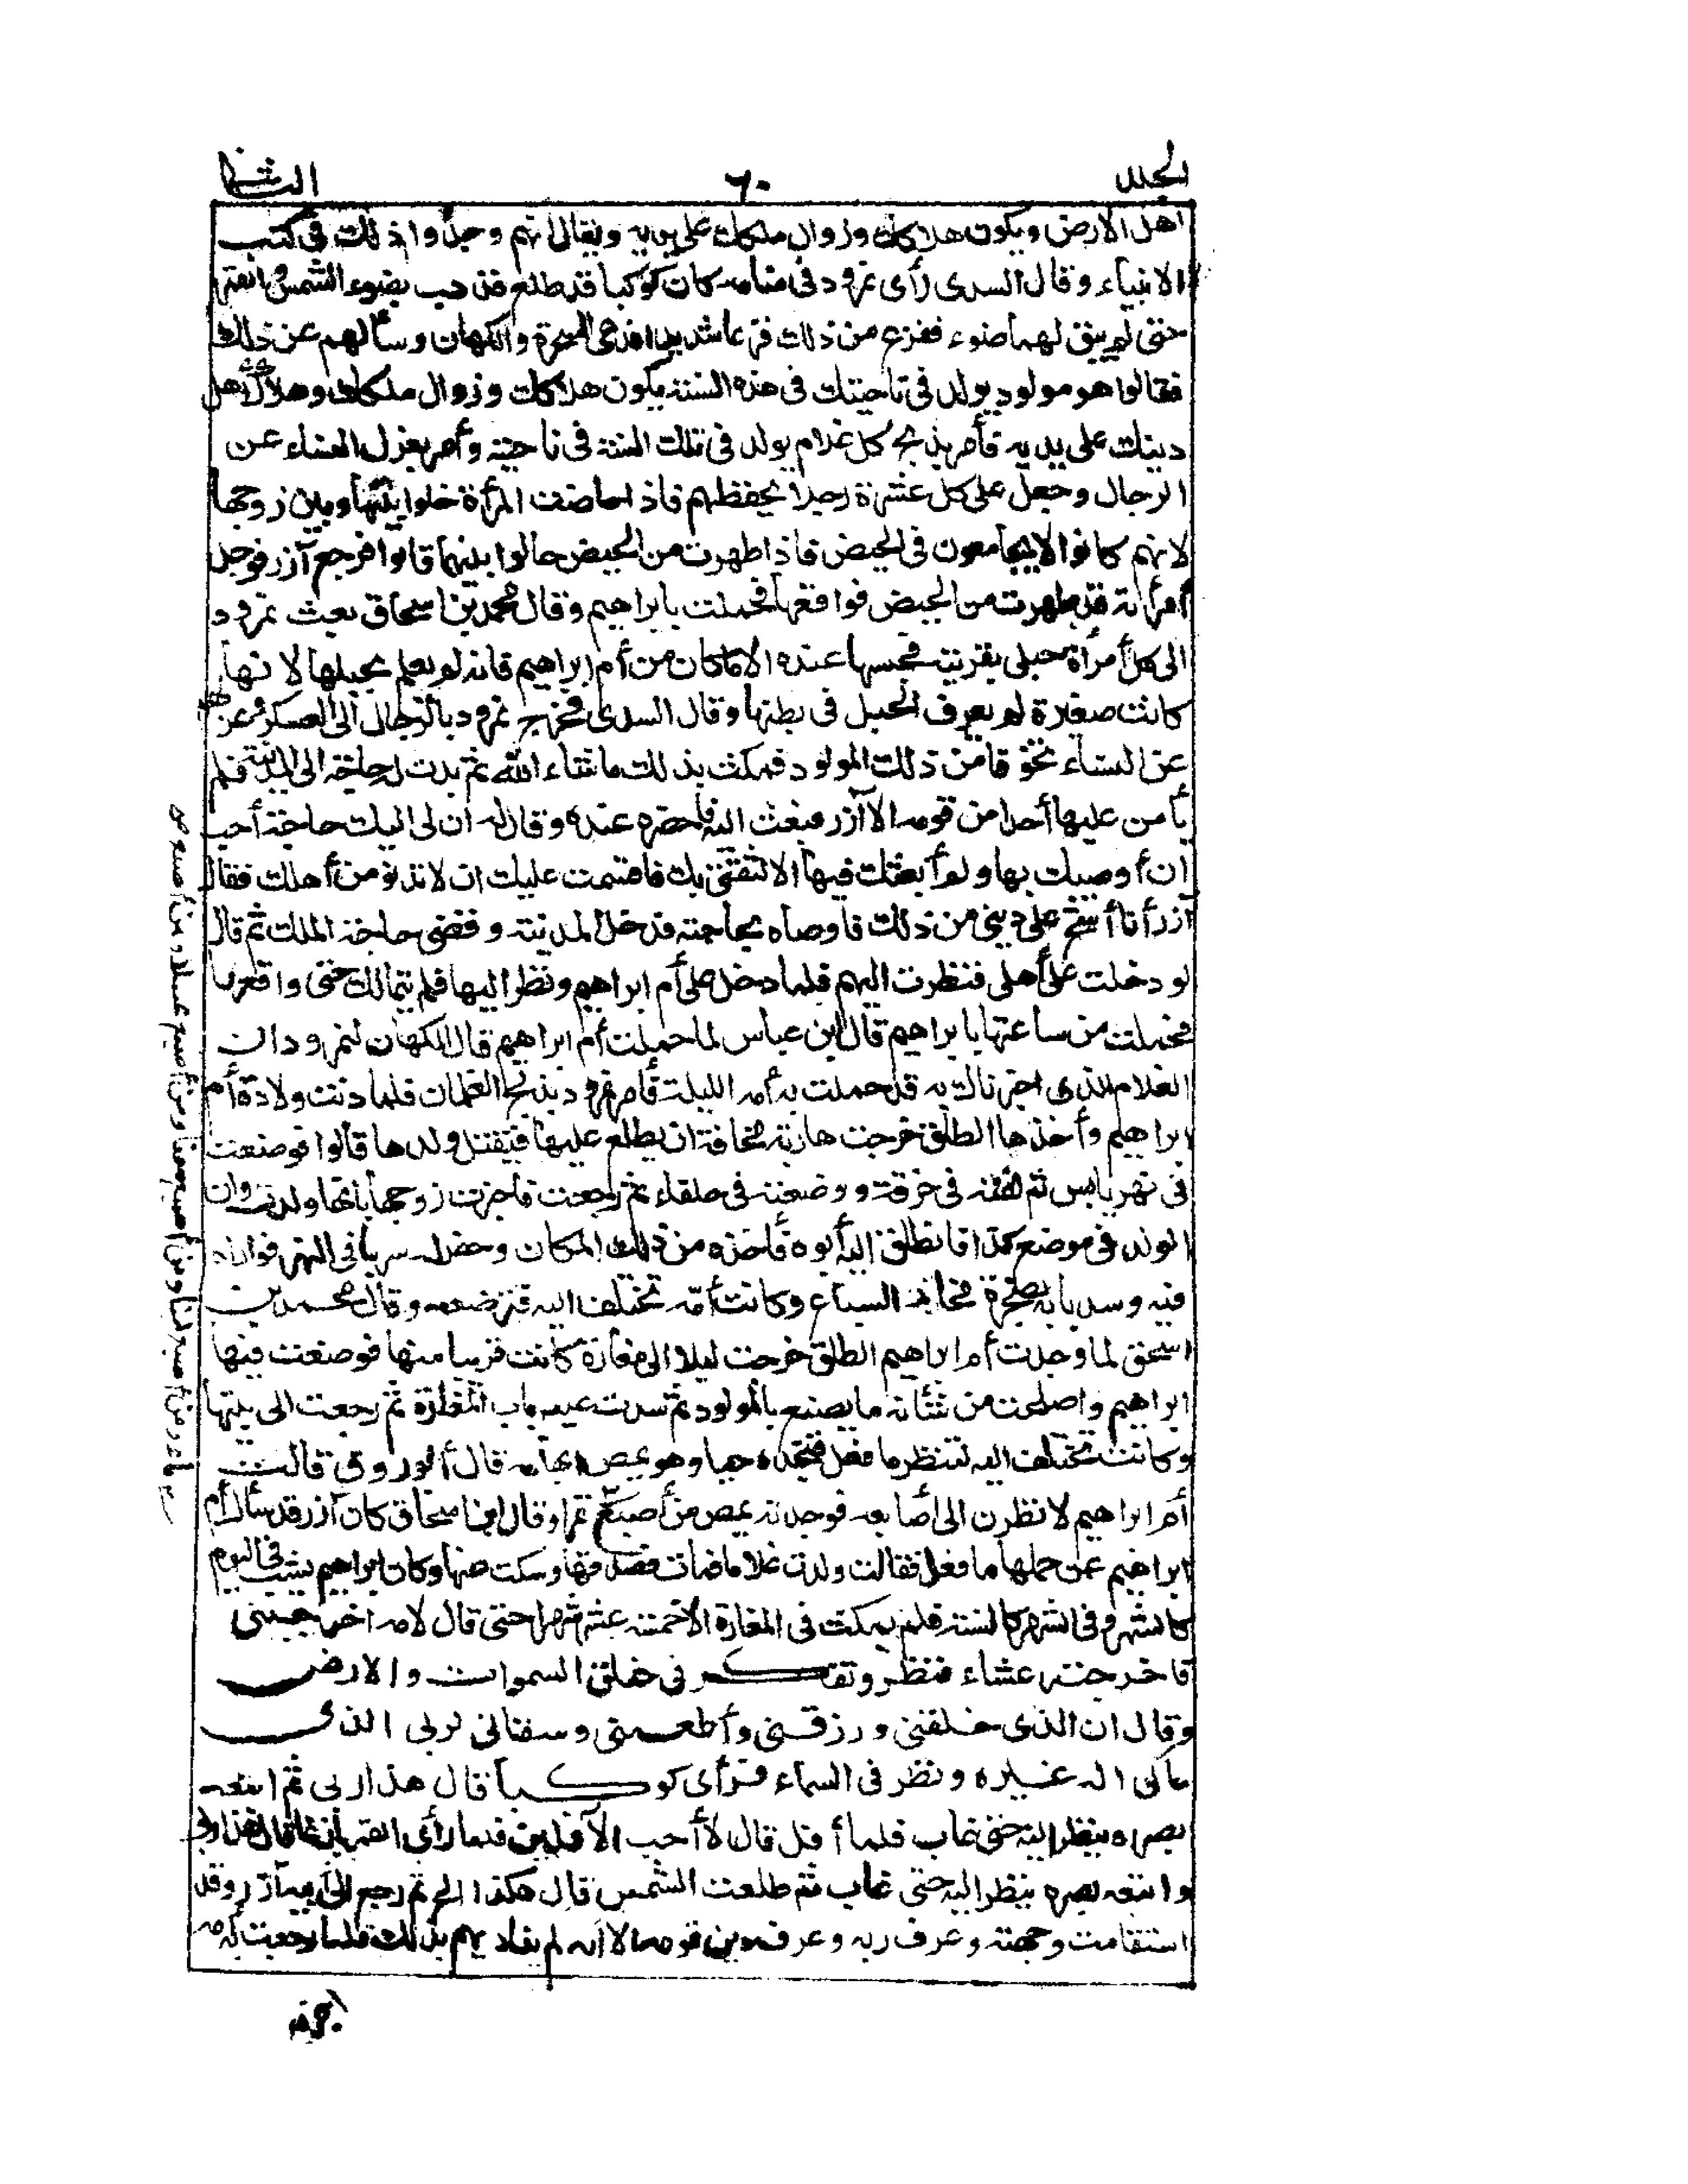 المجلد ٦٠ الثانى
أهل الارض ويكون هلاكك وزوال ملكك على يديه ويقال انهم وجدوا ذلك فى كتب
الانبياء وقال السدى رأى نمرود فى منامه كان كوكبا قد طلع فذهب بضوء الشمس والقمر
حتى لم يبق لهما ضوء ففزع من ذلك فزعا شديدا فدعى السحرة والكهان وسألهم عن ذلك
فقالوا هو مولود يولد فى ناحيتك فى هذه السنة يكون هلاكك وزوال ملكك وهلاك أهل
دينك على يديه فأمر بذبح كل غلام يولد فى تلك السنة فى ناحيته وأمر بعزل النساء عن
الرجال وجعل على كل عشرة رجلا يحفظهم فاذا حاضت المرأة خلوا بينها وبين زوجها
لانهم كانوا لا يجامعون فى الحيض فاذا طهرت من الحيض حالوا بينهما قالوا فرجع آزر فوجد
امرأته قد طهرت من الحيض فواقعها فحملت بابراهيم وقال محمد بن اسحاق بعث نمرود
الى كل أمرأة حبلى بقريته فحبسها عنده الا ما كان من أم ابراهيم فانه لم يعلم بحبلها لانها
كانت صغيرة لم يعرف الحبل فى بطنها وقال السدى فخرج نمرود بالرجال الى العسكر وعزلهم
عن النساء تخوفا من ذلك المولود فمكث بذلك ما شاء الله ثم بدت له حاجة الى المدينة فلم
يأمن عليها أحدا من قومه الا آزر فبعث اليه فأحضره عنده وقال له ان لى اليك حاجة أحب
ان أوصيك بها ولم أبعثك فيها الا لثقتى بك فاقسمت عليك ان لا تدنو من أهلك فقال
آزر أنا أشح على دينى من ذلك فاوصاه بحاجته فدخل المدينة وقضى حاجة الملك ثم قال
لو دخلت على أهلى فنظرت اليهم فلما دخل على أم ابراهيم ونظر اليها فلم يتمالك حتى واقعها
فحملت من ساعتها بابراهيم قال ابن عباس لما حملت أم ابراهيم قال الكهان لنمرود ان
الغلام الذى اخبرناك به قد حملت به أمه الليلة فأمر نمرود بذبح الغلمان فلما دنت ولادة أم
ابراهيم وأخذها الطلق خرجت هاربة مخافة ان يطلع عليها فيقتل ولدها قالوا فوضعت
فى نهر يابس ثم لفته فى خرقة ووضعته فى حلفاء ثم رجعت فاخبرت زوجها بانها ولدت وان
الولد فى موضع كذا فانطلق اليه أبوه فأخذه من ذلك المكان وحفر له سربا فى النهر فواراه
فيه وسد بابه بصخرة مخافة السباع وكانت أمه تختلف اليه فترضعه وقال محمد بن
اسحق لما وجدت أم ابراهيم الطلق خرجت ليلا الى مغارة كانت قريبا منها فوضعت فيها
ابراهيم واصلحت من شأنه ما يصنع بالمولود ثم سدت عليه باب المغارة ثم رجعت الى بيتها
وكانت تختلف اليه لتنظر ما فعل فتجده حيا وهو يمص ابهامه قال أبو روق قالت
أم ابراهيم لانظرن الى أصابعه فوجدته يمص من أصبع
تمرا وقال ابن اسحاق كان آزر قد سأل أم
ابراهيم عن حملها ما فعل فقالت ولدت غلاما فمات فصدقها وسكت عنها وكان ابراهيم يشب فى اليوم
كالشهر وفى الشهر كالسنة فلم يمكث فى المغارة الا خمسة عشر شهرا حتى قال لامه اخرجينى
فاخرجته عشاء فنظر وتفكر فى خلق السموات والارض
وقال ان الذى خلقنى ورزقنى وأطعمنى وسقانى لربى الذى
مالى اله غيره ونظر فى السماء فرأى كوكبا قال هذا ربى ثم اتبعه
بصره ينظر اليه حتى غاب فلما أفل قال لا أحب الآفلين فلما رأى القمر بازغا قال هذا ربى
واتبعه بصره ينظر اليه حتى غاب ثم طلعت الشمس قال هكذا الخ ثم رجع الى أبيه آزر وقد
استقامت وجهته وعرف ربه وعرف دين قومه الا أنه لم يناديهم بذلك فلما رجعت به أمه
ماء ومن أصبع لبنا ومن أصبع سمنا ومن أصبع عسلا ومن أصبع ص